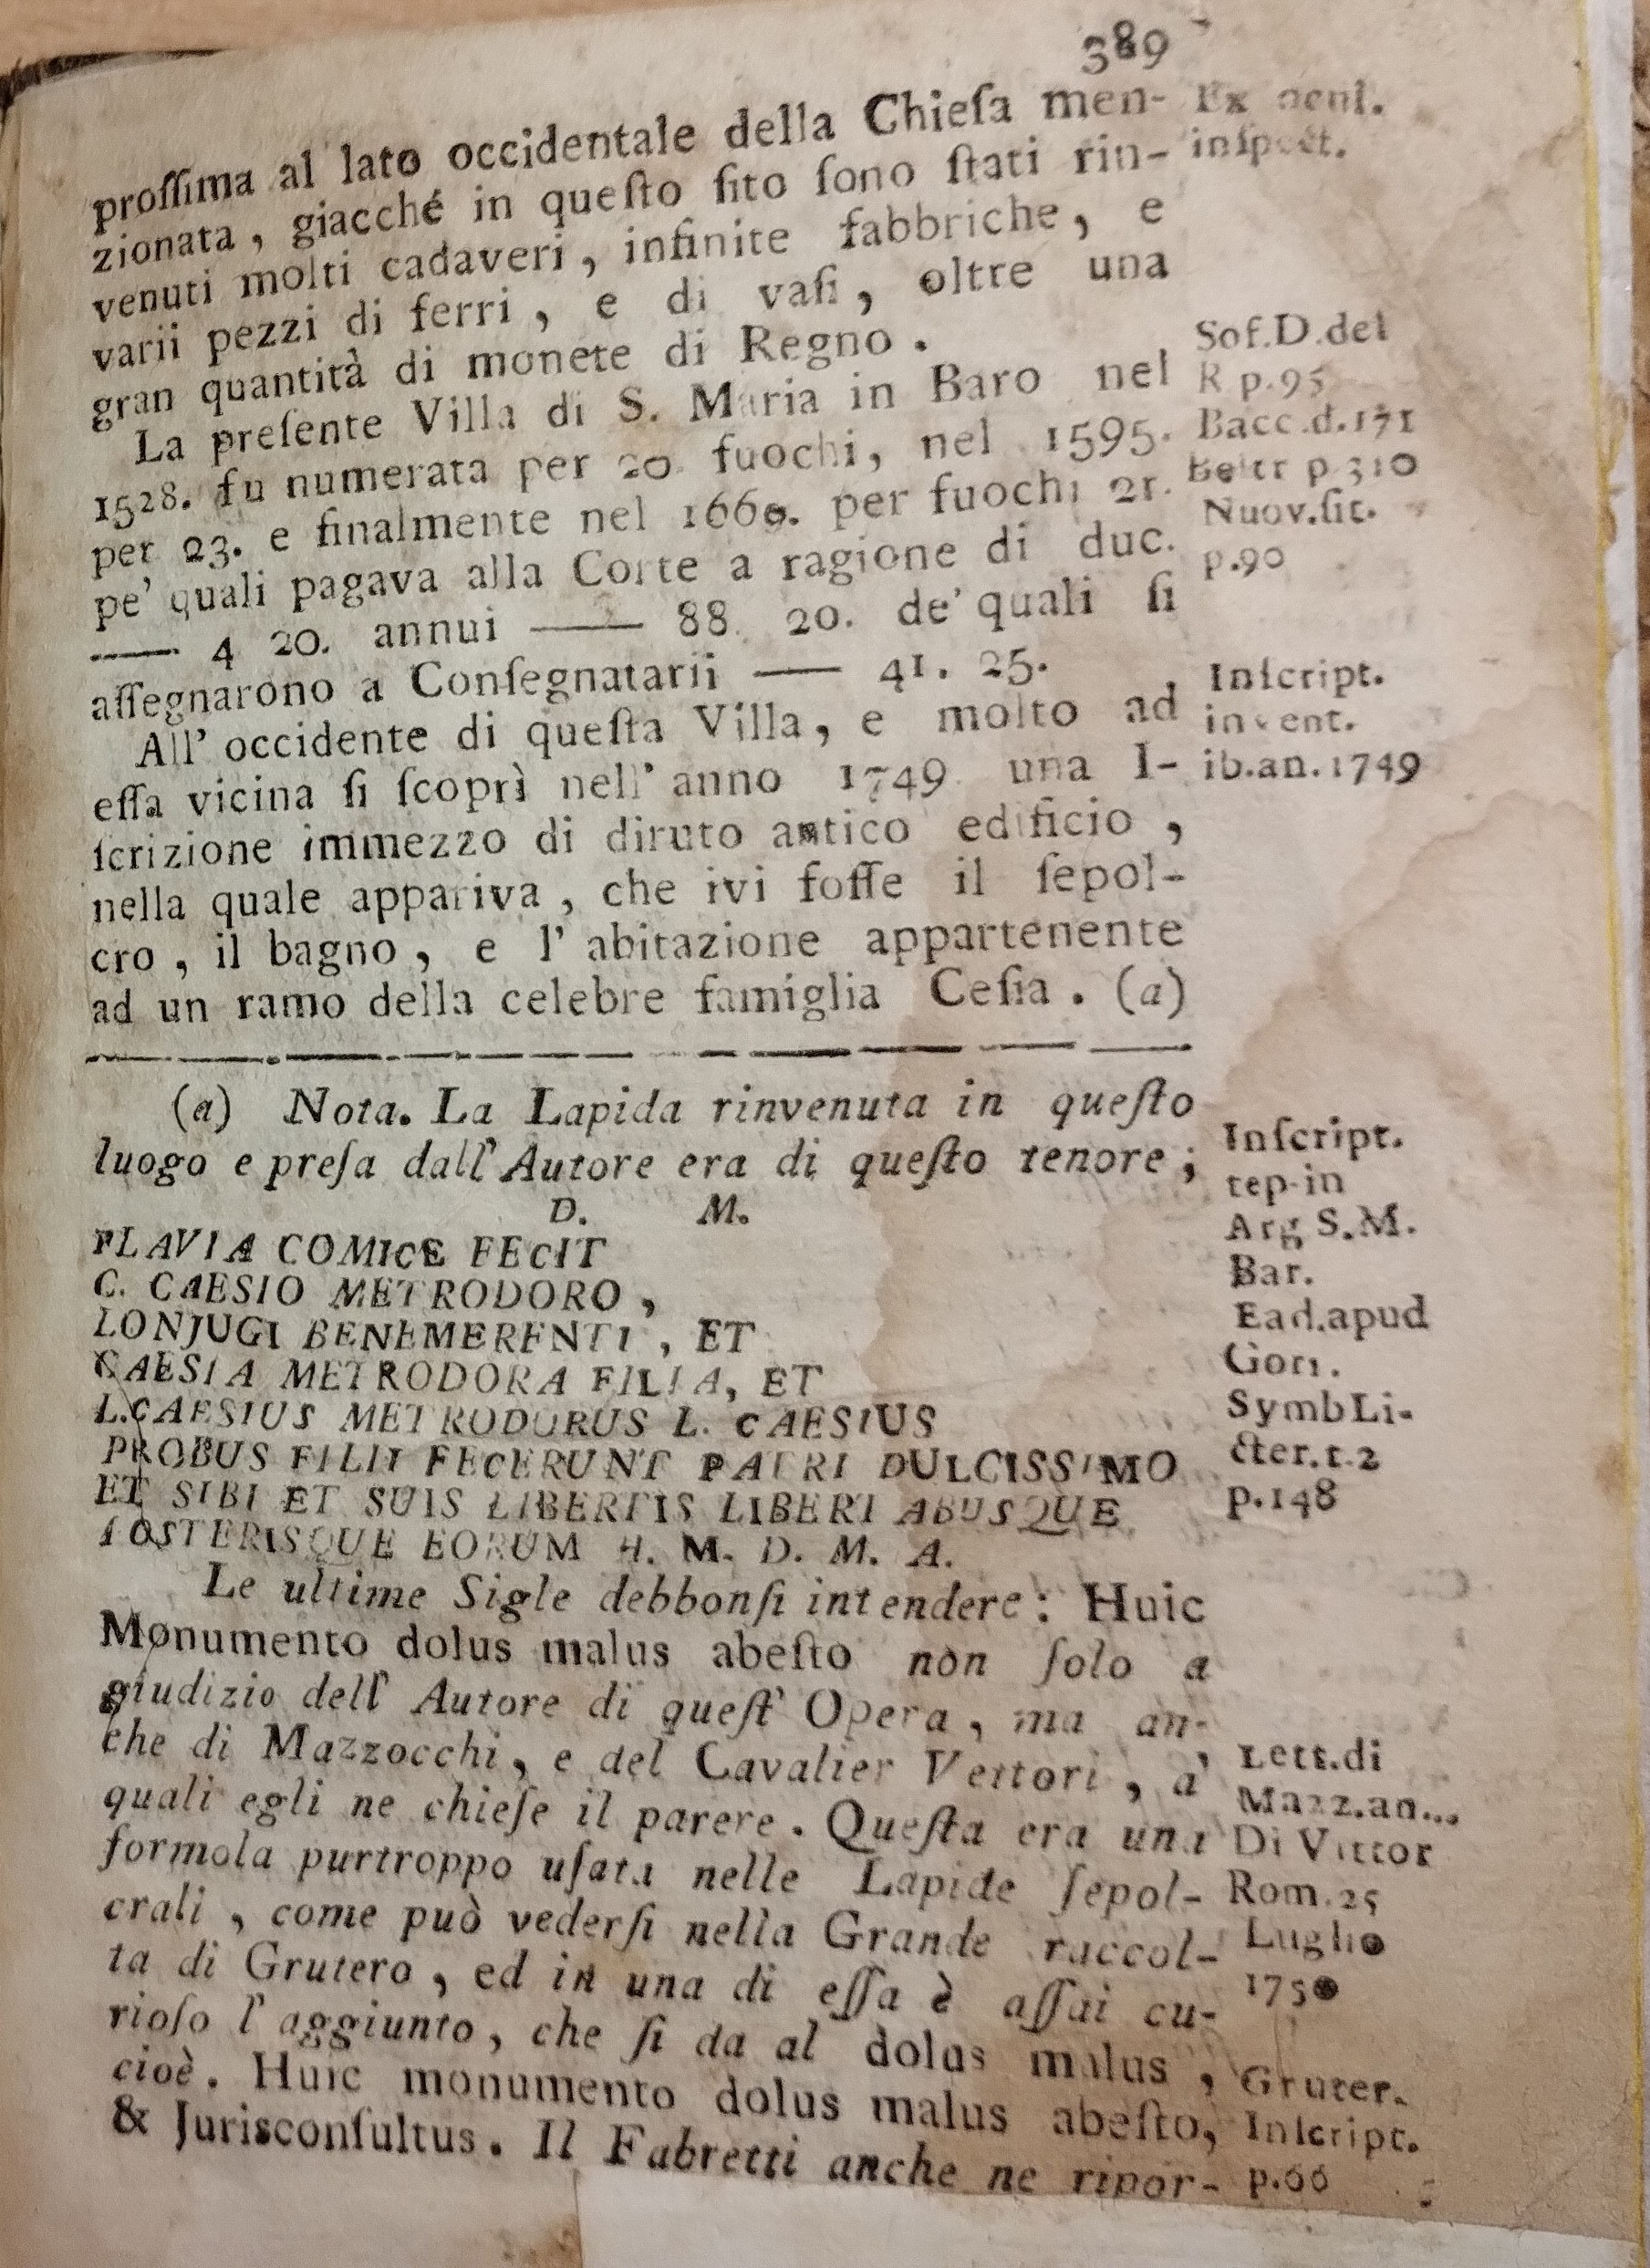 389
proſſima al lato occidentale della Chieſa men-
zionata, giacché in queſto ſito ſono ſtati rin-
venuti molti cadaveri, infinite fabbriche, e
varii pezzi di ferri, e di vaſi, oltre una
gran quantità di monete di Regno.
La preſente Villa di S. Maria in Baro nel
1528. fu numerata per 20. fuochi, nel 1595.
per 23. e finalmente nel 1660. per fuochi 21.
pe' quali pagava alla Corte a ragione di duc.
—— 4 20. annui —— 88. 20. de' quali ſi
aſſegnarono a Conſegnatarii —— 41. 25.
All' occidente di queſta Villa, e molto ad
eſſa vicina ſi ſcoprì nell' anno 1749 una I-
ſcrizione immezzo di diruto antico edificio,
nella quale appariva, che ivi foſſe il ſepol-
cro, il bagno, e l' abitazione appartenente
ad un ramo della celebre famiglia Ceſia. (a)
Ex
inſpect.
Sof.D.del
R p.95
Bacc.d.171
Beltr p 310
Nuov.ſit.
p.90
Inſcript.
invent.
ib.an.1749
(a) Nota. La Lapida rinvenuta in queſto
luogo e preſa dall' Autore era di queſto tenore;
D. M.
FLAVIA COMICE FECIT
C. CAESIO METRODORO,
LONJUGI BENEMERENTI, ET
CAESIA METRODORA FILIA, ET
L.CAESIUS METRODORUS L. CAESIUS
PROBUS FILII FECERUNT PATRI DULCISSIMO
ET SIBI ET SUIS LIBERTIS LIBERT ABUSQUE
POSTERISQUE EORUM H. M. D. M. A.
Le ultime Sigle debbonſi intendere: Huic
Monumento dolus malus abeſto non ſolo a
giudizio dell' Autore di queſt' Opera, ma an-
che di Mazzocchi, e del Cavalier Vettori, a'
quali egli ne chieſe il parere. Queſta era una
formola purtroppo uſata nelle Lapide ſepol-
crali, come può vederſi nella Grande raccol-
ta di Grutero, ed in una di eſſa è aſſai cu-
rioſo l' aggiunto, che ſi da al dolus malus,
cioè. Huic monumento dolus malus abeſto,
& Jurisconſultus. Il Fabretti anche ne ripor-
Inſcript.
rep-in
Arg S.M.
Bar.
Ead.apud
Gori.
Symb Li-
cter.t.2
p.148
Lett.di
Mazz.an...
Di Vittor
Rom.25
Luglio
1750
Gruter.
Inſcript.
p.66